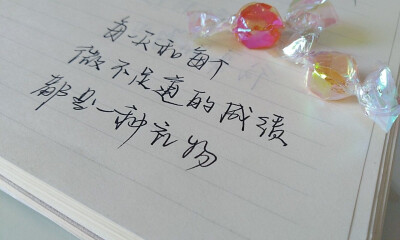 每一天和每个
微不足道的成绩
都是一种礼物